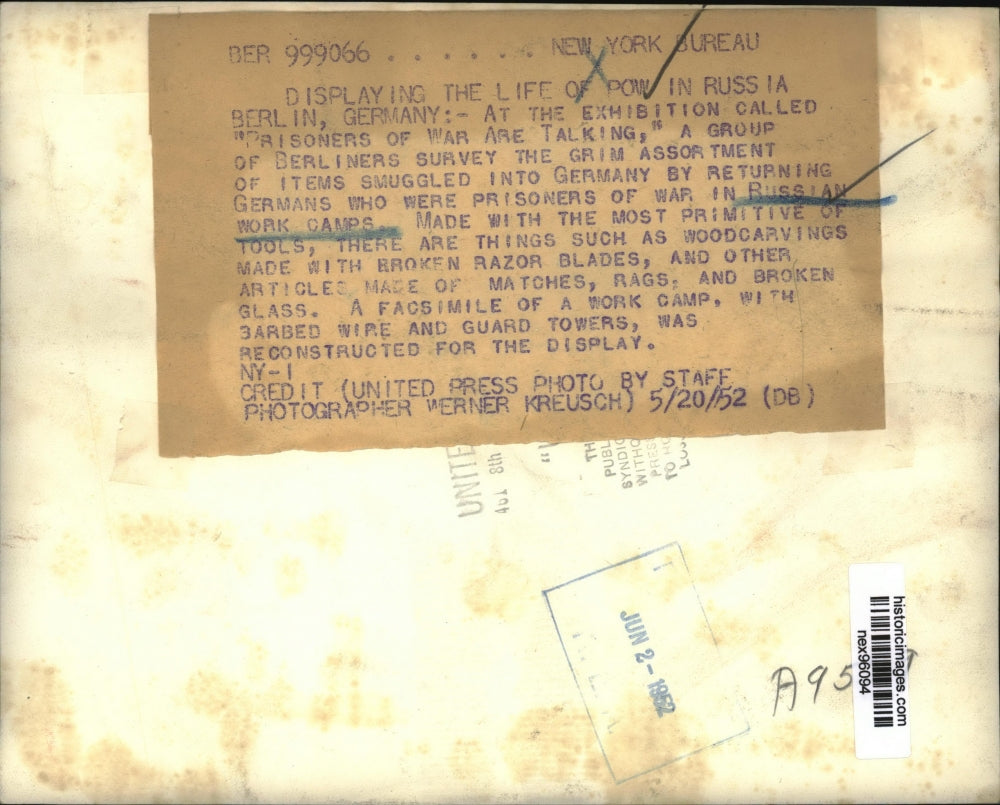 BER 999066 . . . . . . . NEW YORK BUREAU
DISPLAYING THE LIFE OF POW IN RUSSIA
BERLIN, GERMANY:- AT THE EXHIBITION CALLED
"PRISONERS OF WAR ARE TALKING," A GROUP
OF BERLINERS SURVEY THE GRIM ASSORTMENT
OF ITEMS SMUGGLED INTO GERMANY BY RETURNING
GERMANS WHO WERE PRISONERS OF WAR IN RUSSIAN
WORK CAMPS. MADE WITH THE MOST PRIMITIVE OF
TOOLS, THERE ARE THINGS SUCH AS WOODCARVINGS
MADE WITH BROKEN RAZOR BLADES, AND OTHER
ARTICLES MADE OF MATCHES, RAGS, AND BROKEN
GLASS. A FACSIMILE OF A WORK CAMP, WITH
BARBED WIRE AND GUARD TOWERS, WAS
RECONSTRUCTED FOR THE DISPLAY.
NY-1
CREDIT (UNITED PRESS PHOTO BY STAFF
PHOTOGRAPHER WERNER KREUSCH) 5/20/52 (DB)
UNITE
461 8th
TH
PUBL
SYNDIC
WITHO
PRES
TO
JUN 2 - 1952
A95
historicimages.com
nex96094